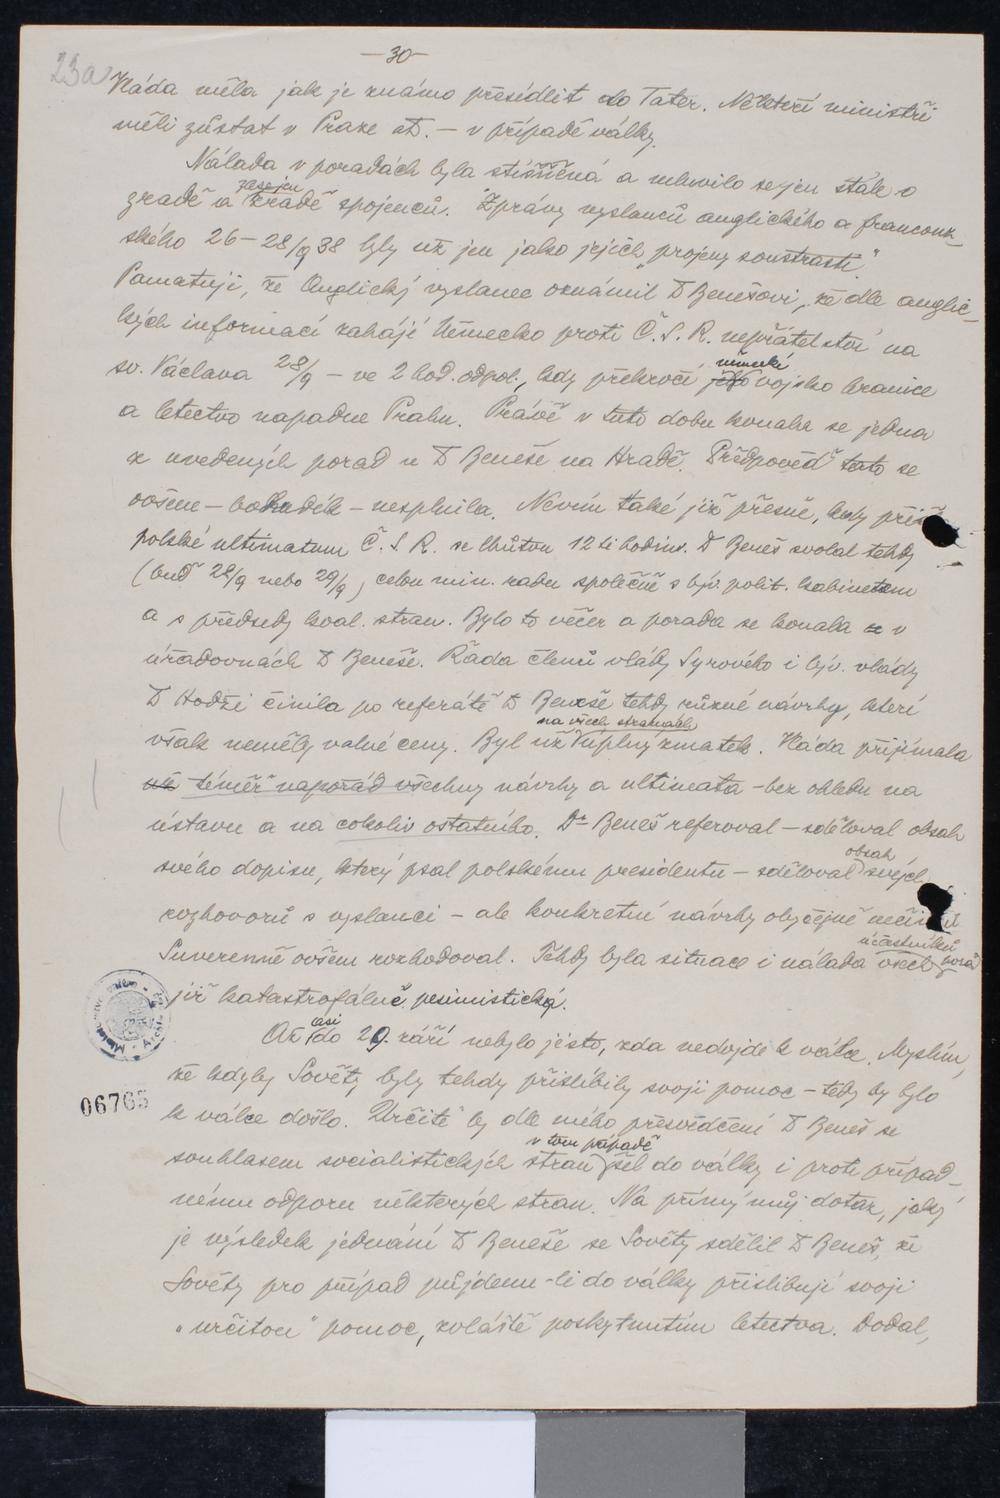 23a
—30—
Vláda měla jak je známo přesídlit do Tater. Někteří ministři
měli zůstat v Praze atd. — v případě války.
Nálada v poradách byla stísněná a mluvilo se jen stále o
zradě a zase jen zradě spojenců. Zprávy vyslanců anglického a francouz-
ského 26—28/9 38 byly už jen jako jejich „projevy soustrasti."
Pamatuji, že Anglický vyslanec oznámil D Benešovi, že dle anglic-
kých informací zahájí Německo proti Č.S.R. nepřátelství na
sv. Václava 28/9 — ve 2 hod. odpol., kdy překročí jeho německé vojsko hranice
a letectvo napadne Prahu. Právě v tuto dobu konala se jedna
z uvedených porad u D Beneše na Hradě. Předpověď tato se
ovšem — bohudík — nesplnila. Nevím také již přesně, kdy přišlo
polské ultimatum Č.S.R. se lhůtou 12 ti hodin. D Beneš svolal tehdy
(buď 28/9 nebo 29/9) celou min. radu společně s býv. polit. kabinetem
a s předsedy koal. stran. Bylo to večer a porada se konala v
úřadovnách D Beneše. Řada členů vlády Syrového i býv. vlády
D Hodži činila po referátě D Beneše tehdy různé návrhy, kterí
však neměly valné ceny. Byl už na všech stranách úplný zmatek. Vláda přijímala
už téměř napořád všechny návrhy a ultimata — bez ohledu na
ústavu a na cokoliv ostatního. Dr Beneš referoval — sděloval obsah
svého dopisu, který psal polskému presidentu — sděloval obsah svých
rozhovorů s vyslanci — ale konkretní návrhy obyčejně nečinil
Suverenně ovšem rozhodoval. Tehdy byla situace i nálada všech účastníků porad
již katastrofálně pesimistická.
Až asi do 29. září nebylo jisto, zda nedojde k válce. Myslím,
že kdyby Sověty byly tehdy přislíbily svoji pomoc — tehdy by bylo
k válce došlo. Určitě by dle mého přesvědčení D Beneš se
souhlasem socialistických stran v tom případě šel do války i proti případ-
nému odporu některých stran. Na přímý můj dotaz, jaký
je výsledek jednání D Beneše se Sověty sdělil D Beneš, že
Sověty pro případ půjdeme-li do války přislibují svoji
„určitou" pomoc, zvláště poskytnutím letectva. Dodal,
06765